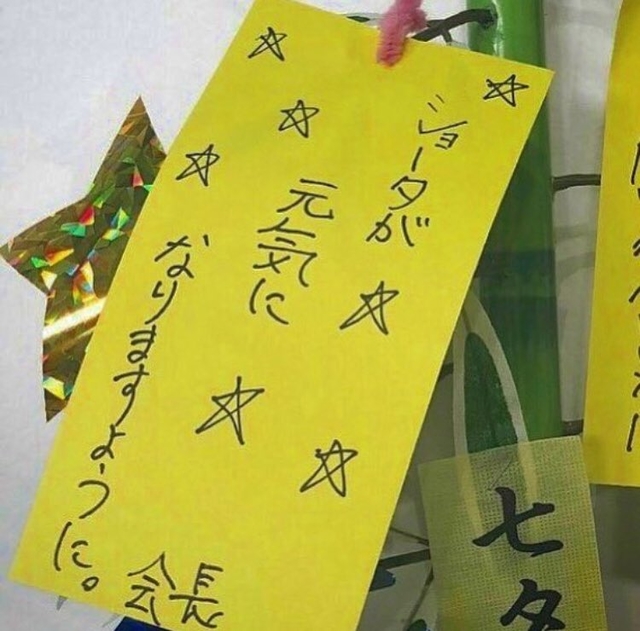 ショータが
元気に
なりますように。
会長
七夕